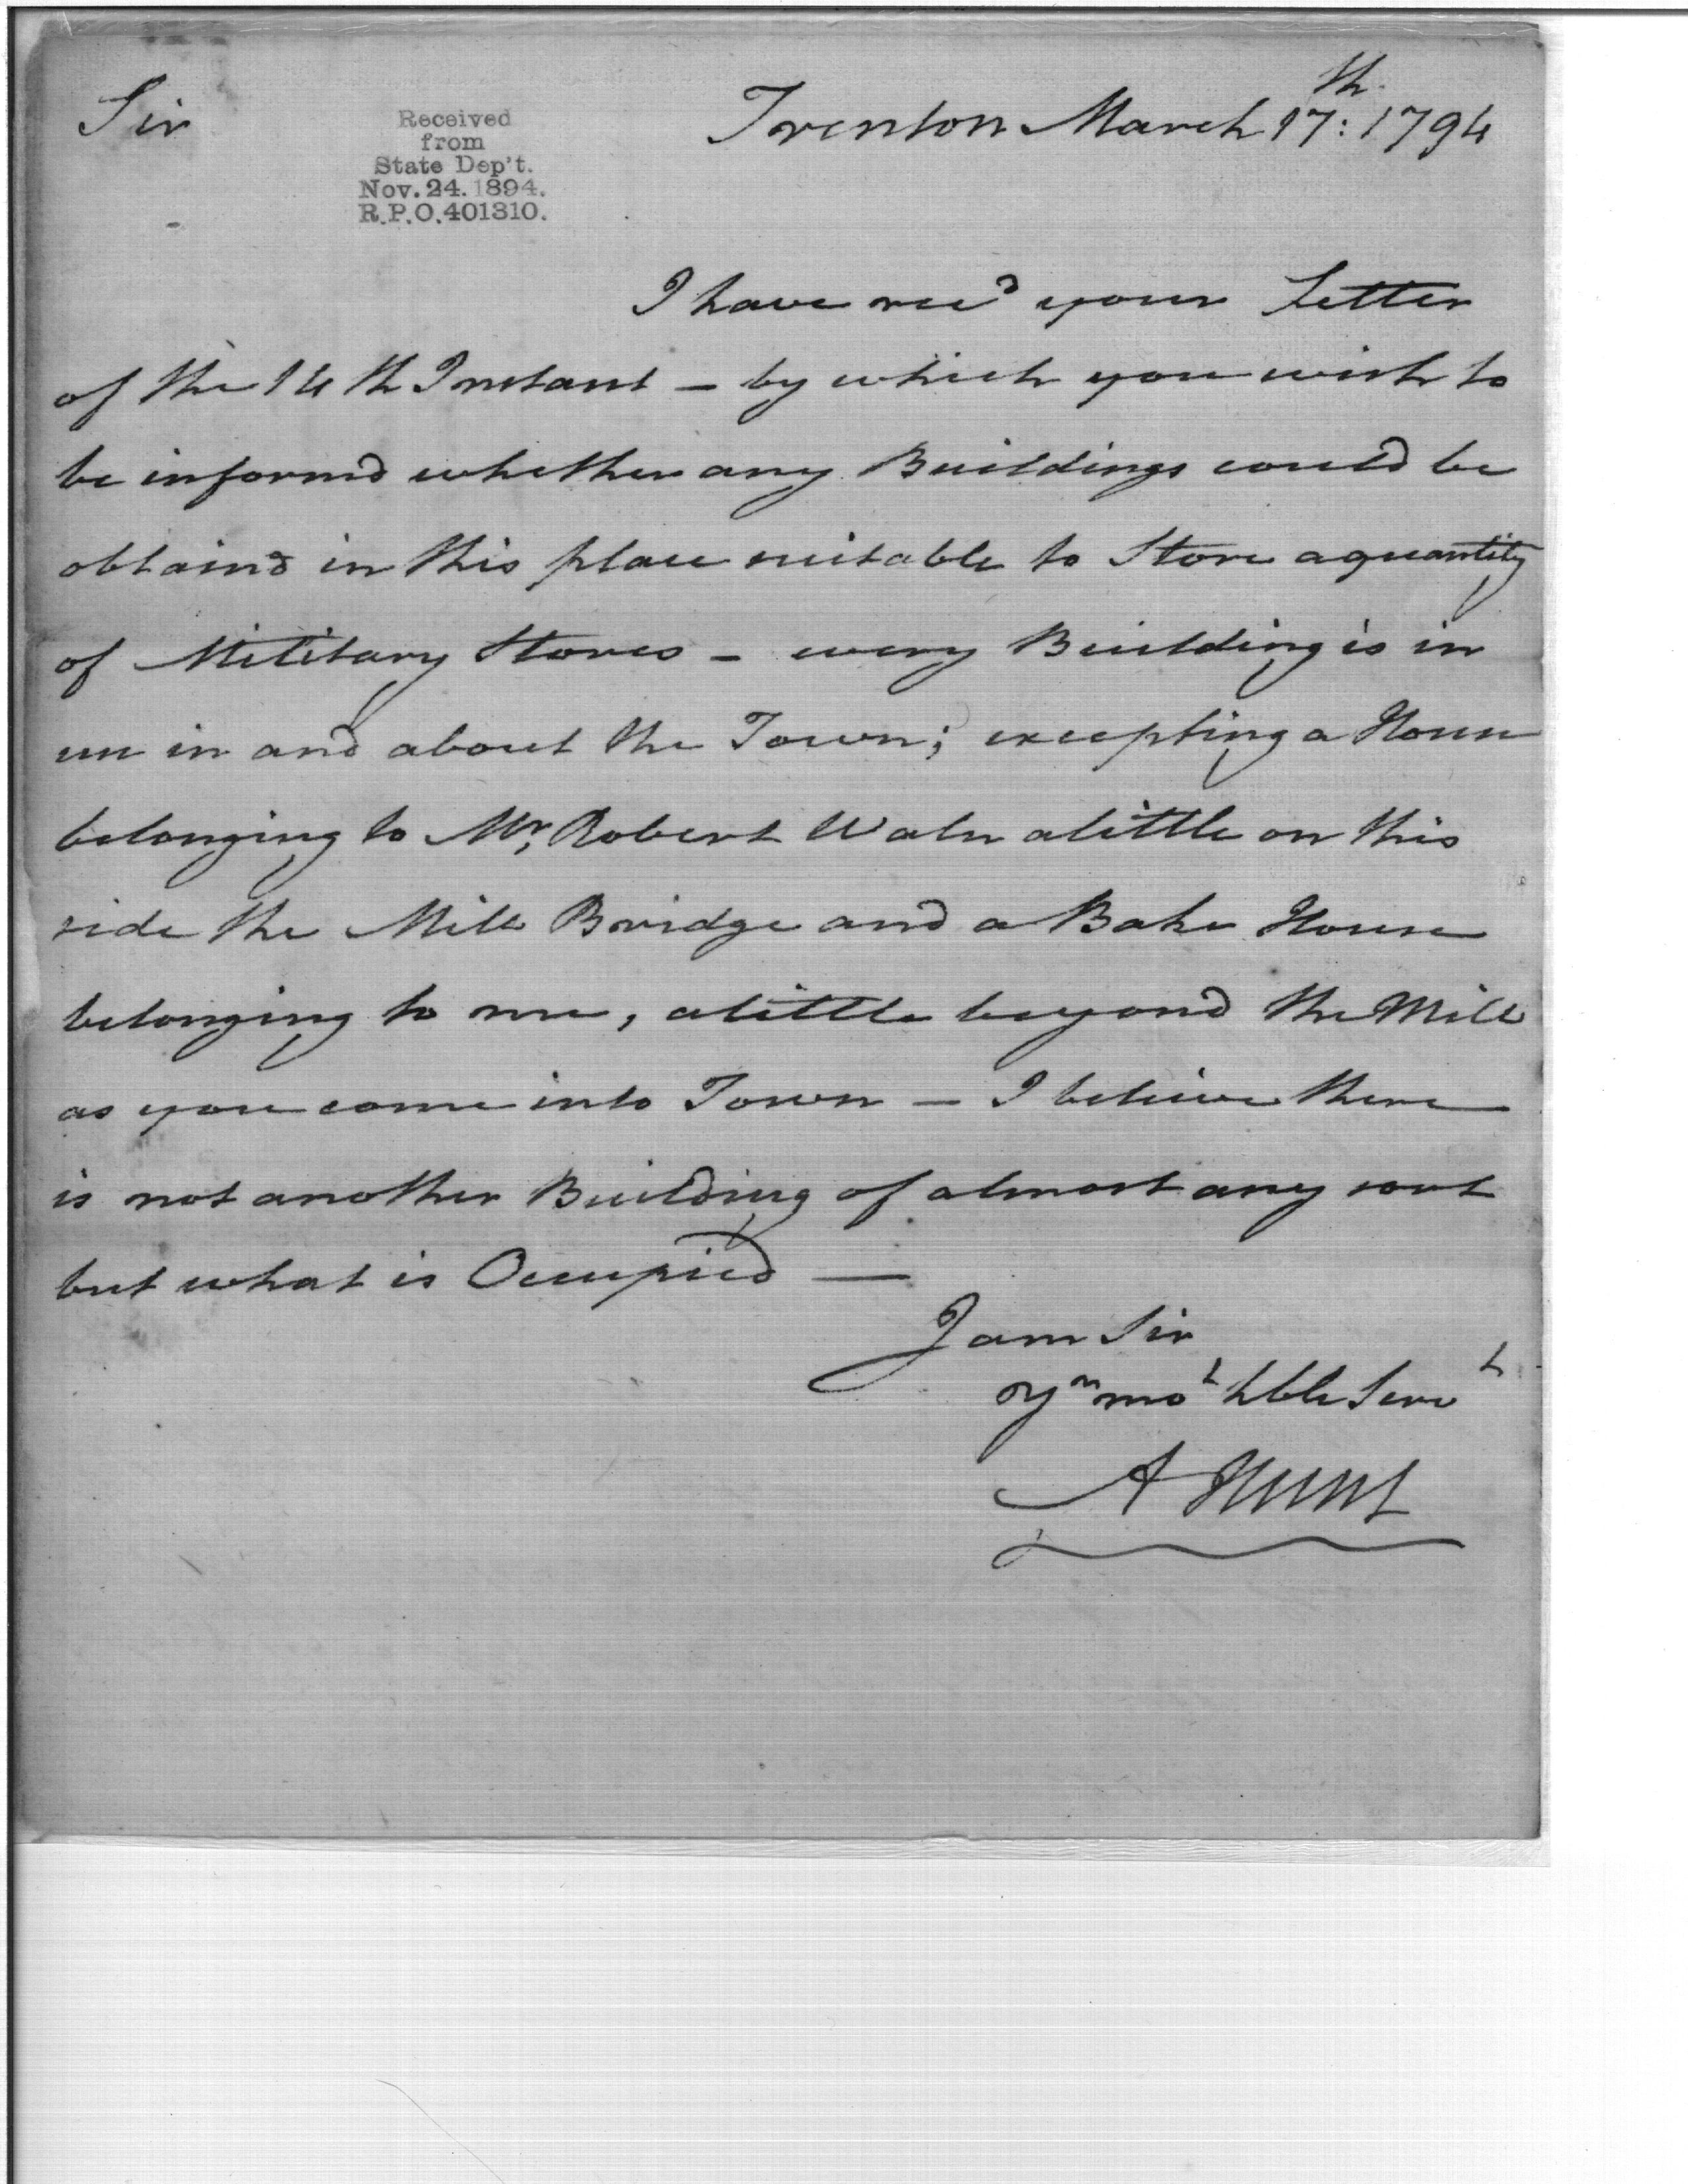 Sir
Received
from
State Dep't.
Nov. 24. 1894.
R.P.O. 401310.
Trenton March 17th: 1794
I have recd your Letter
of the 14th Instant - by which you wish to
be informd whether any Buildings could be
obtaind in this place suitable to Store a quantity
of Military Stores - every Building is in
use in and about the Town; excepting a House
belonging to Mr. Robert Waln a little on this
side the Mill Bridge and a Bake House
belonging to me, a little beyond the Mill
as you come into Town - I believe there
is not another Building of almost any sort
but what is Occupied —
I am Sir
yr mot hble Servt
A Hunt